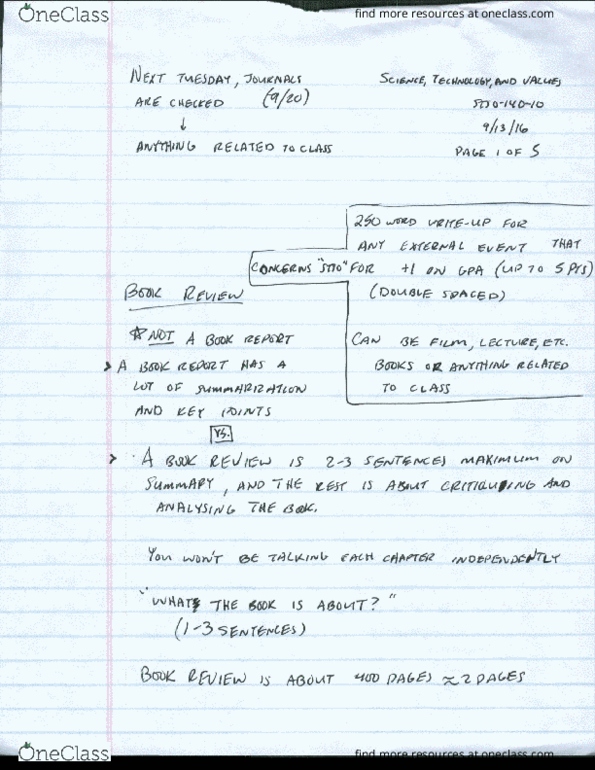 OneClass
find more resources at oneclass.com
NEXT TUESDAY, JOURNALS
ARE CHECKED (9/20)
↓
ANYTHING RELATED TO CLASS
SCIENCE, TECHNOLOGY, AND VALUES
STO-140-10
9/13/16
PAGE 1 OF 5
250 WORD WRITE-UP FOR
ANY EXTERNAL EVENT THAT
CONCERNS "STO" FOR +1 ON GPA (UP TO 5 PTS)
(DOUBLE SPACED)
CAN BE FILM, LECTURE, ETC.
BOOKS OR ANYTHING RELATED
TO CLASS
BOOK REVIEW
☆ NOT A BOOK REPORT
> A BOOK REPORT HAS A
LOT OF SUMMARIZATION
AND KEY POINTS
VS.
> A BOOK REVIEW IS 2-3 SENTENCES MAXIMUM ON
SUMMARY, AND THE REST IS ABOUT CRITIQUING AND
ANALYSING THE BOOK.
YOU WON'T BE TALKING EACH CHAPTER INDEPENDENTLY
"WHAT THE BOOK IS ABOUT?"
(1-3 SENTENCES)
BOOK REVIEW IS ABOUT 400 PAGES ≈ 2 PAGES
OneClass
find more resources at oneclass.com